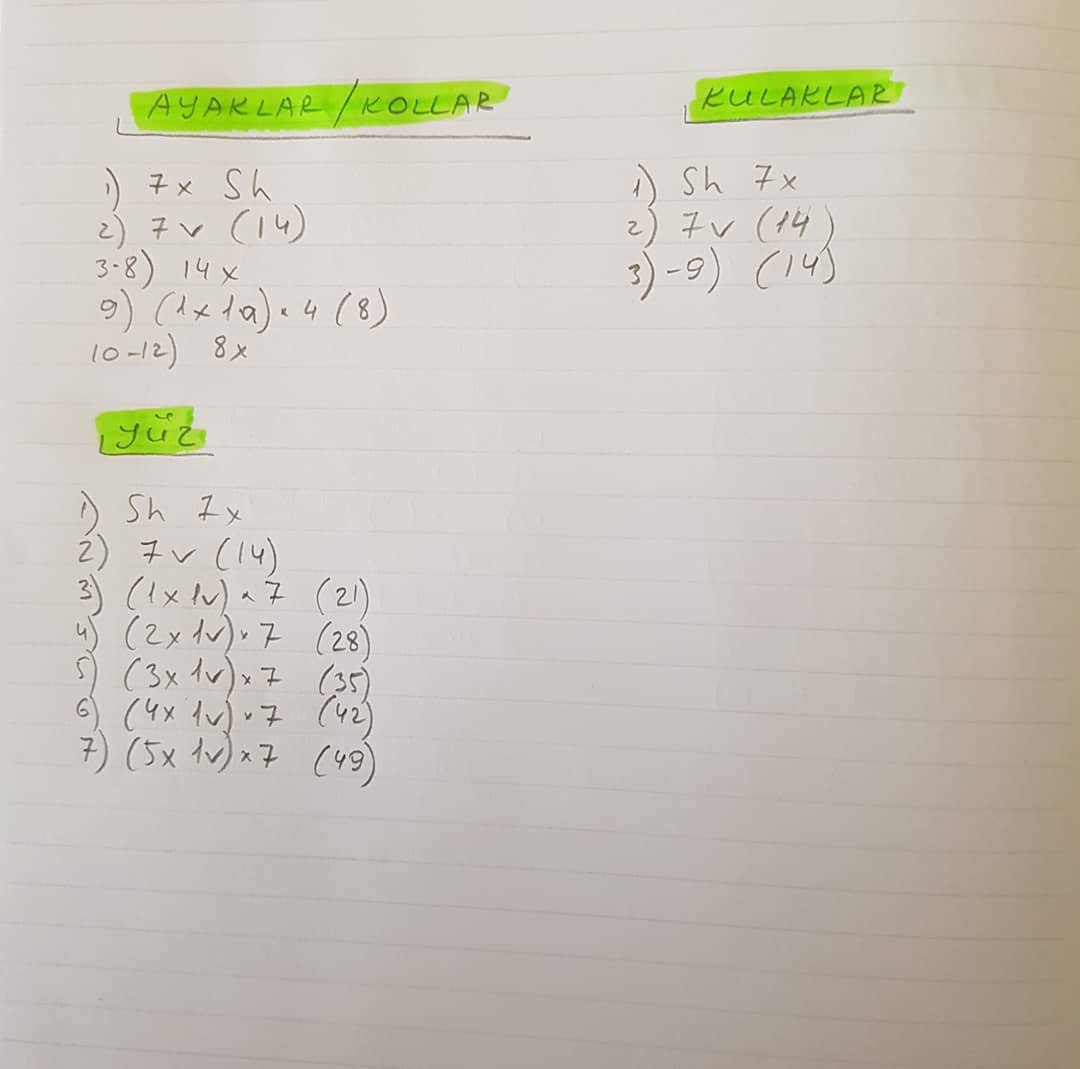 AYAKLAR/KOLLAR
1) 7x Sh
2) 7v (14)
3-8) 14x
9) (1x1a)x4 (8)
10-12) 8x
KULAKLAR
1) Sh 7x
2) 7v (14)
3)-9) (14)
YÜZ
1) Sh 7x
2) 7v (14)
3) (1x1v)x7 (21)
4) (2x1v)x7 (28)
5) (3x1v)x7 (35)
6) (4x1v)x7 (42)
7) (5x1v)x7 (49)